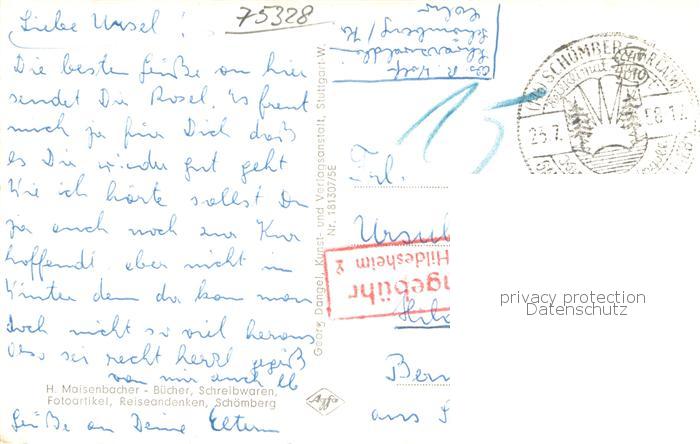 Liebe Ursel!
75328
Die besten Grüße von hier
sendet Dir Rosel. Es freut
mich ja für Dich daß
es Dir wieder gut geht
Wie ich hörte sollst Du
ja auch noch zur Kur
hoffendl. aber nicht im
Winter denn da kan man
doch nicht so viel heraus
Also sei recht herzl gegrüßt
von mir auch lb
Grüße an Deine Eltern
H. Maisenbacher - Bücher, Schreibwaren,
Fotoartikel, Reiseandenken, Schömberg
Agfa
Georg Dangel, Kunst- und Verlagsanstalt, Stuttgart-W.
Nr. 181307/5E
R. Wolf
Schwarzwaldheim
Schömberg
15
SCHÖMBERG
23.7.
Frl.
Ursul
ngebühr
Hildesheim 2
Hil
Bern
aus
privacy protection
Datenschutz